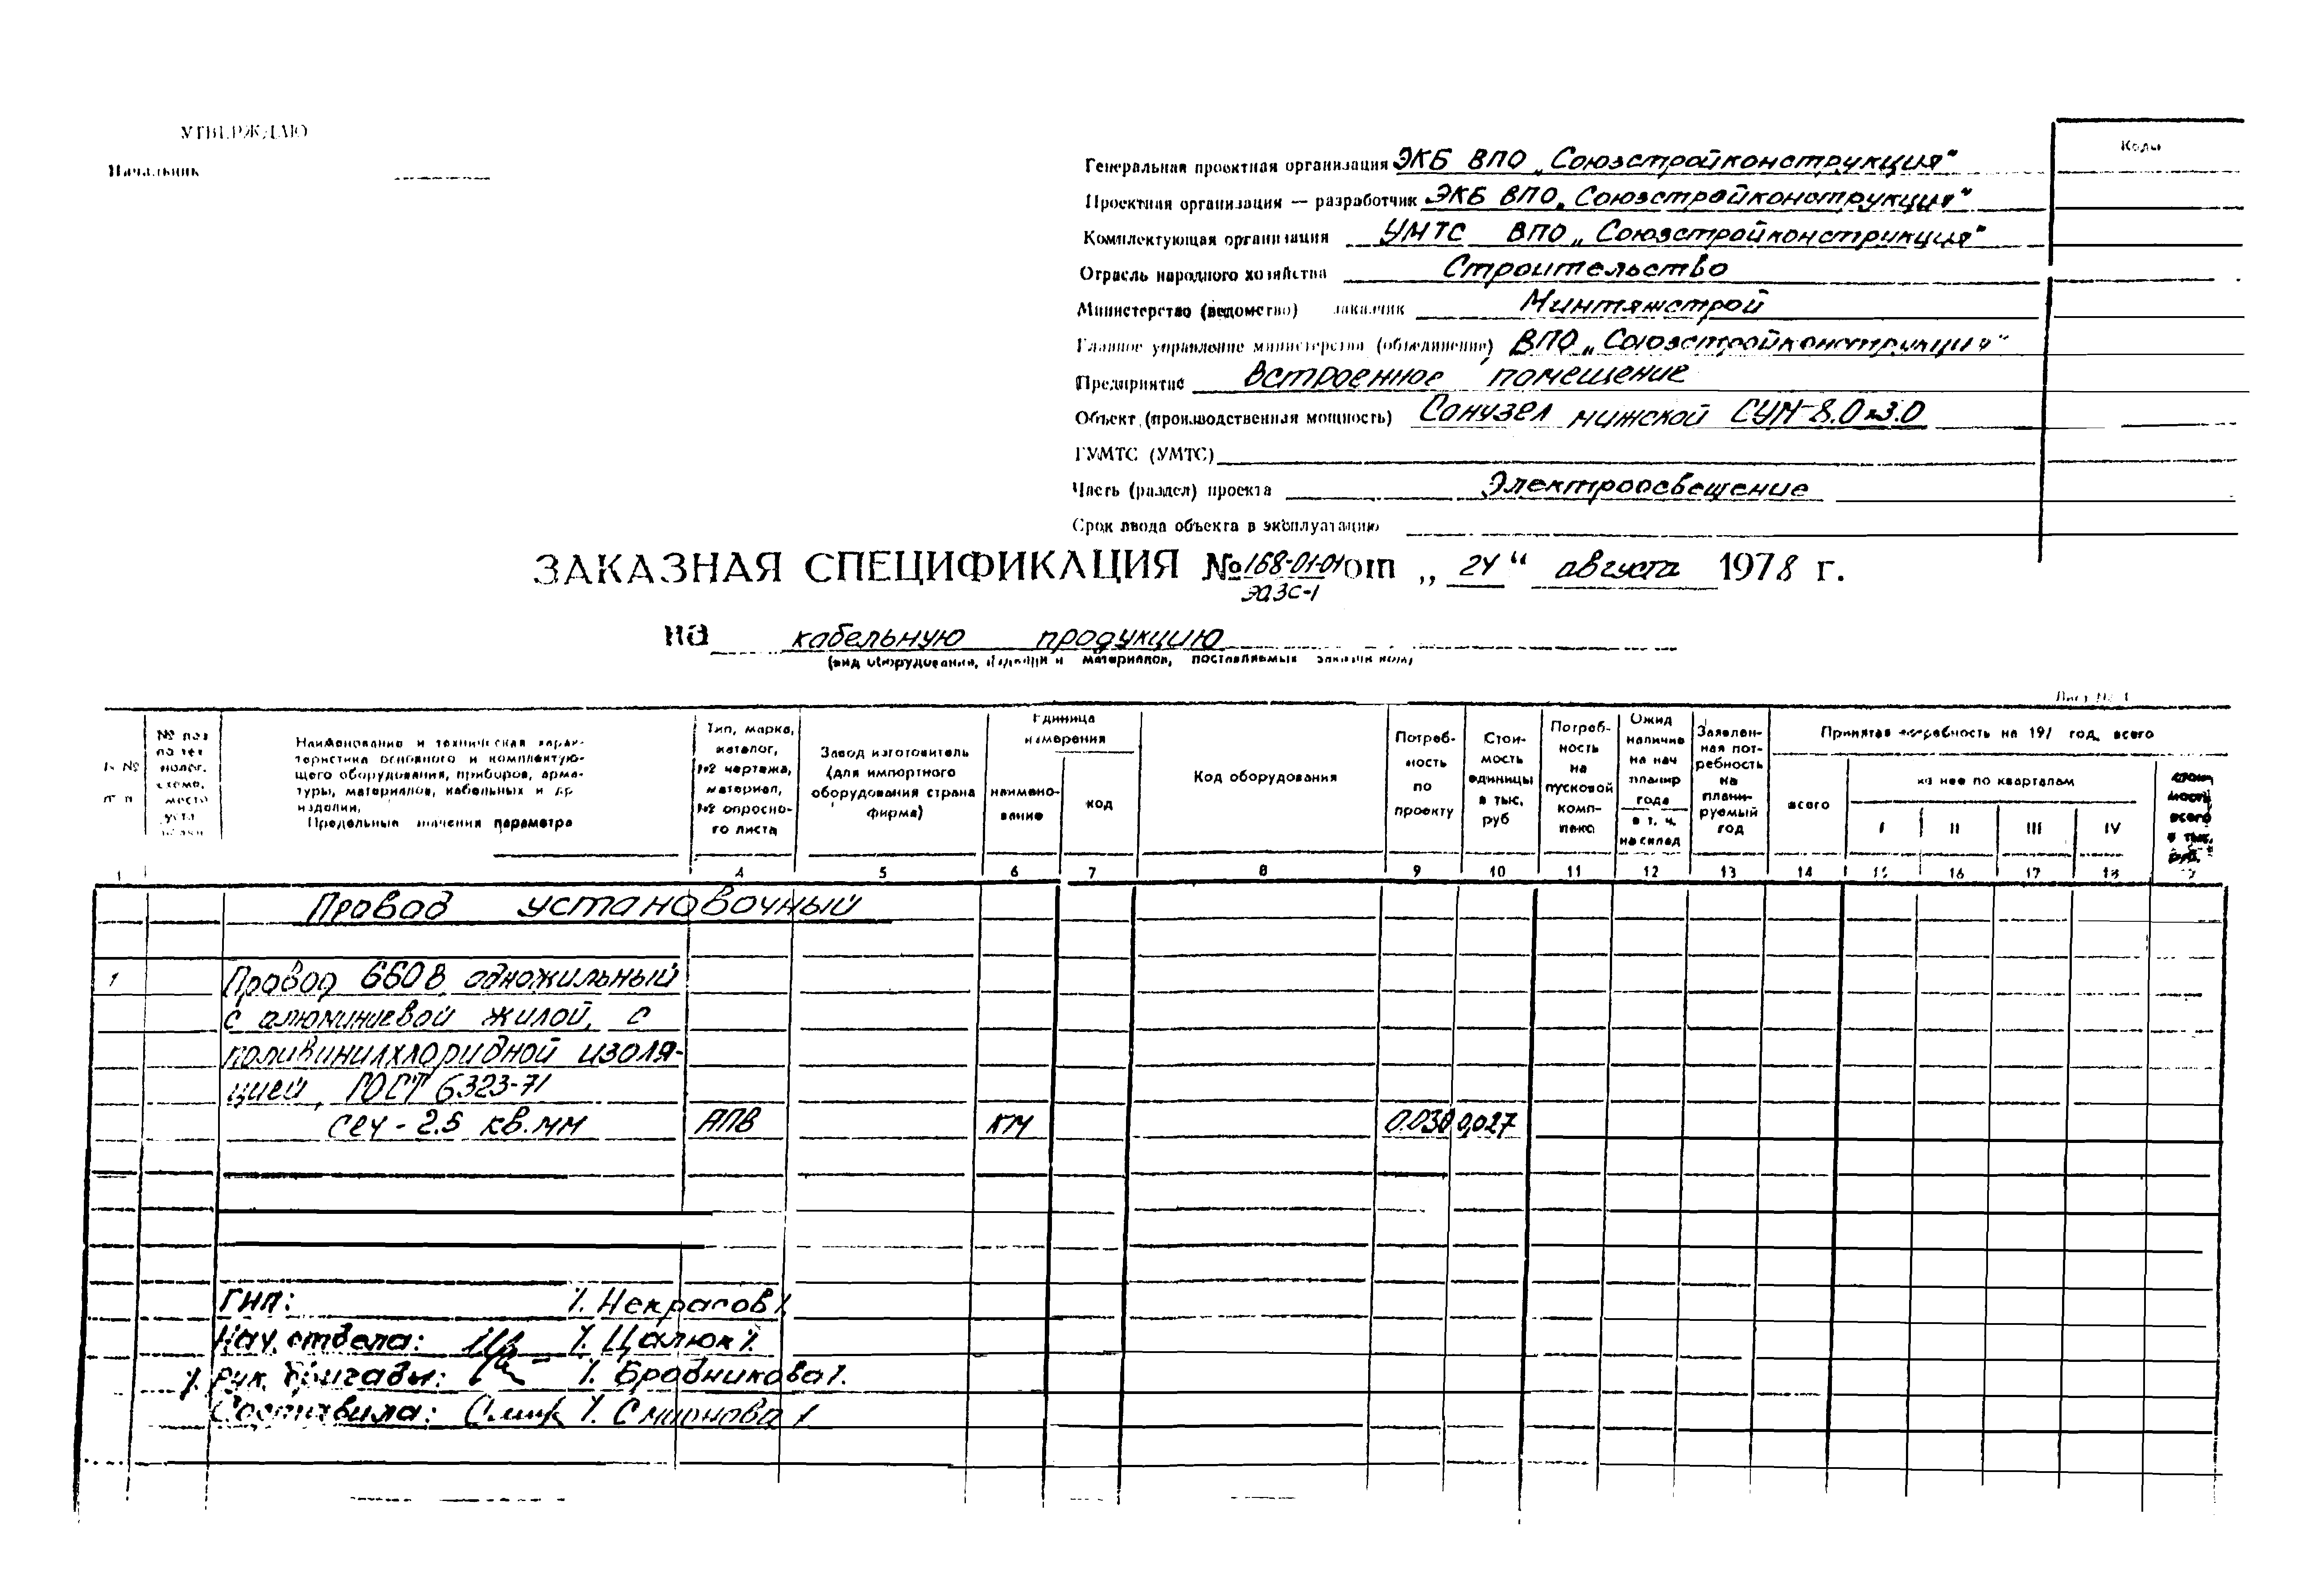 УТВЕРЖДАЮ
Начальник
Коды
Генеральная проектная организация ЭКБ ВПО „Союзстройконструкция"
Проектная организация — разработчик ЭКБ ВПО „Союзстройконструкция"
Комплектующая организация УМТС ВПО „Союзстройконструкция"
Отрасль народного хозяйства Строительство
Министерство (ведомство) заказчик Минтяжстрой
Главное управление министерства (объединение) ВПО „Союзстройконструкция"
Предприятие Встроенное помещение
Объект (производственная мощность) Санузел мужской СУМ-8.0х3.0
ГУМТС (УМТС)
Часть (раздел) проекта Электроосвещение
Срок ввода объекта в эксплуатацию
ЗАКАЗНАЯ СПЕЦИФИКАЦИЯ № 168-01-01 от „ 24 " августа 1978 г.
ЭАЗС-1
на кабельную продукцию
(вид оборудования, изделий и материалов, поставляемых заказчиком)
Лист № 1
№ № п п
№ поз по технолог. схеме, место установки
Наименование и техническая характеристика основного и комплектующего оборудования, приборов, арматуры, материалов, кабельных и др изделий.
Предельные значения параметра
Тип, марка, каталог, № чертежа, материал, № опросного листа
Завод изготовитель (для импортного оборудования страна фирма)
Единица измерения
наименование
код
Код оборудования
Потребность по проекту
Стоимость единицы в тыс. руб
Потребность на пусковой комплекс
Ожид наличие на нач планир года
в т. ч. на склад
Заявленная потребность на планируемый год
Принятая потребность на 197 год, всего
всего
из нее по кварталам
I II III IV
стоимость всего в тыс. руб.
1 4 5 6 7 8 9 10 11 12 13 14 15 16 17 18
Провод установочный
1 Провод 660В одножильный
с алюминиевой жилой, с
поливинилхлоридной изоля-
цией, ГОСТ 6323-71
сеч - 2.5 кв.мм АПВ км 0.030 0,027
ГИП: /. Некрасов /
Нач. отдела: /. Цалюк /.
рук. бригады: /. Бровникова /.
Составила: /. Смирнова /